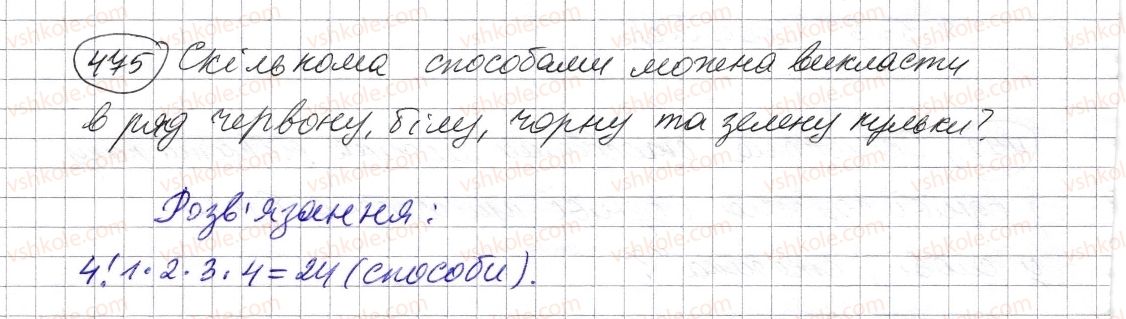 475 Скількома способами можна викласти
в ряд червону, білу, чорну та зелену кульки?
Розв'язання:
4! 1·2·3·4=24 (способи).